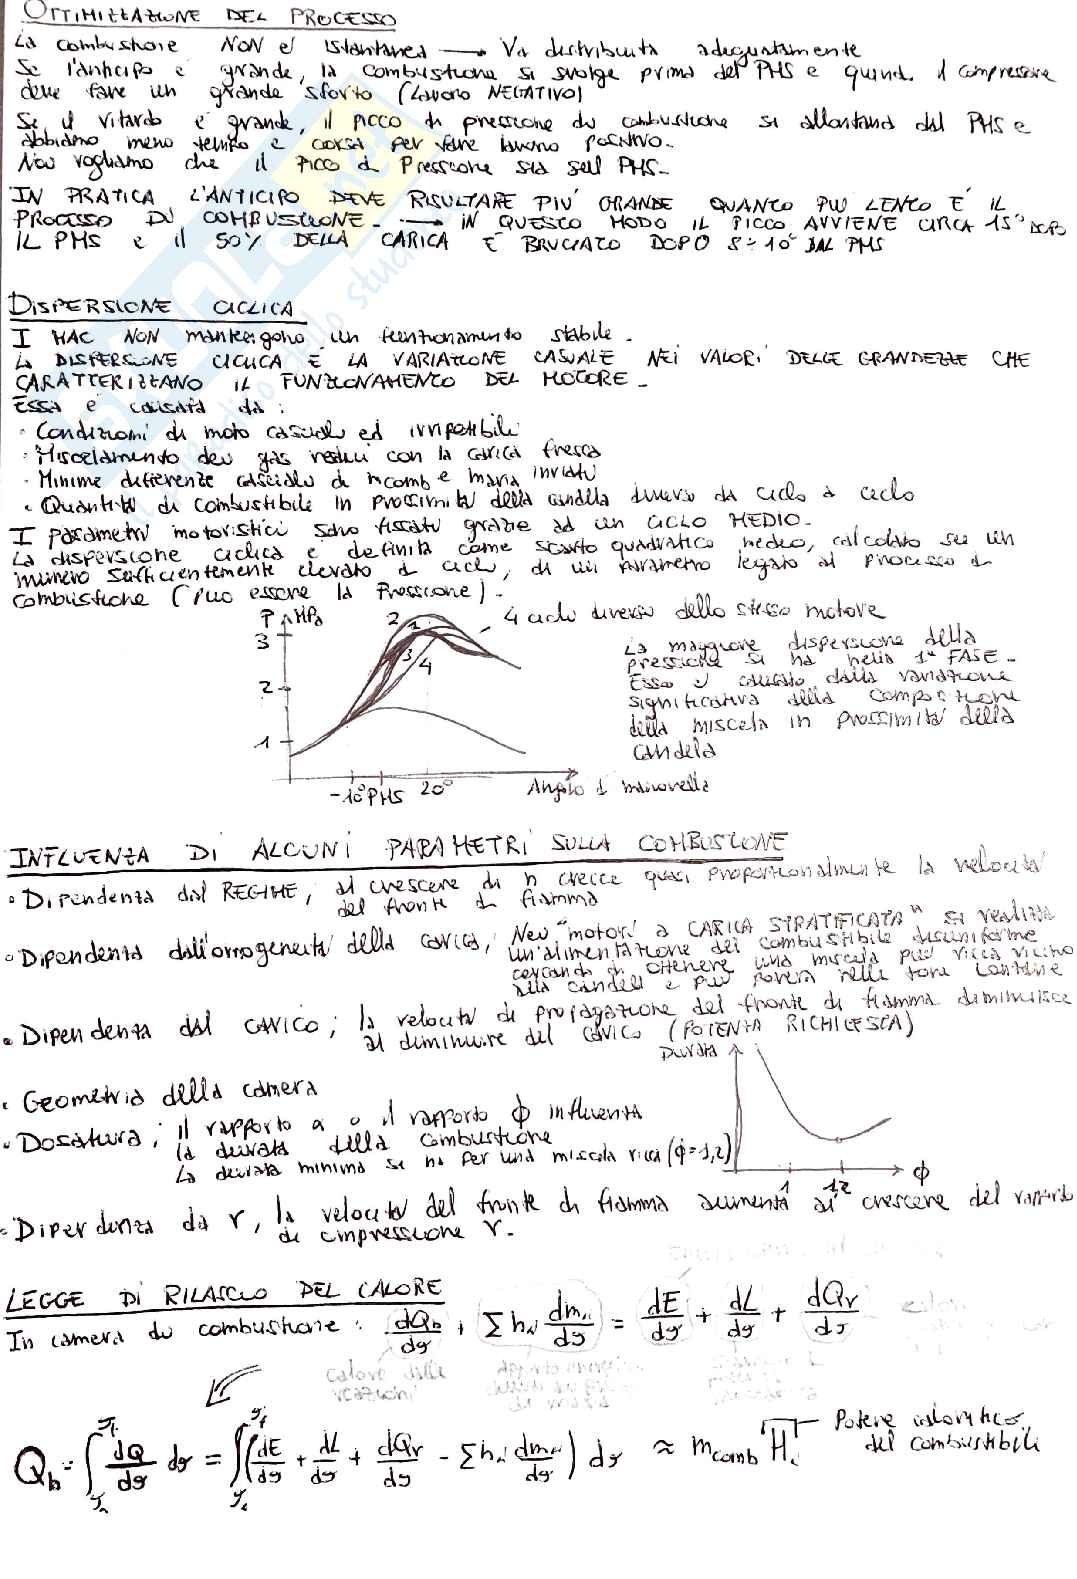 OTTIMIZZAZIONE DEL PROCESSO
La combustione NON è istantanea → Va distribuita adeguatamente
Se l'anticipo è grande, la combustione si svolge prima del PMS e quindi il compressore
deve fare un grande sforzo (lavoro NEGATIVO)
Se il ritardo è grande, il picco di pressione di combustione si allontana dal PMS e
abbiamo meno tempo e corsa per fare lavoro positivo.
Noi vogliamo che il Picco di Pressione sia sul PMS.
IN PRATICA L'ANTICIPO DEVE RISULTARE PIÙ GRANDE QUANTO PIÙ LENTO È IL
PROCESSO DI COMBUSTIONE. → IN QUESTO MODO IL PICCO AVVIENE CIRCA 15° DOPO
IL PMS e il 50% DELLA CARICA È BRUCIATO DOPO 8÷10° DAL PMS
DISPERSIONE CICLICA
I MAC NON mantengono un funzionamento stabile.
La DISPERSIONE CICLICA È LA VARIAZIONE CASUALE NEI VALORI DELLE GRANDEZZE CHE
CARATTERIZZANO IL FUNZIONAMENTO DEL MOTORE.
Essa è causata da:
· Condizioni di moto casuali ed irripetibili
· Miscelamento dei gas residui con la carica fresca
· Minime differenze casuali di mcomb e maria inviati
· Quantità di combustibile in prossimità della candela diverso da ciclo a ciclo
I parametri motoristici sono fissati grazie ad un CICLO MEDIO.
La dispersione ciclica è definita come scarto quadratico medio, calcolato su un
numero sufficientemente elevato di cicli, di un parametro legato al processo di
combustione (Può essere la Pressione).
P MPa
3
2
1
2 1 3 4
4 cicli diversi dello stesso motore
-10° PMS 20° Angolo di manovella
La maggiore dispersione della
pressione si ha nella 1ª FASE.
Esso è causato dalla variazione
significativa della composizione
della miscela in prossimità della
candela
INFLUENZA DI ALCUNI PARAMETRI SULLA COMBUSTIONE
· Dipendenza dal REGIME; al crescere di n cresce quasi proporzionalmente la velocità
del fronte di fiamma
· Dipendenza dall'omogeneità della carica; Nei "motori a CARICA STRATIFICATA" si realizza
un'alimentazione del combustibile disuniforme
cercando di ottenere una miscela più ricca vicino
alla candela e più povera nelle zone lontane
· Dipendenza dal CARICO; la velocità di propagazione del fronte di fiamma diminuisce
al diminuire del carico (POTENZA RICHIESTA)
· Geometria della camera
· Dosatura; il rapporto α o il rapporto ϕ influenza
la durata della combustione
La durata minima si ha per una miscela ricca (ϕ=1,2)
Durata
1 1,2 ϕ
· Dipendenza da r, la velocità del fronte di fiamma aumenta al crescere del rapporto
di compressione r.
LEGGE DI RILASCIO DEL CALORE
In camera di combustione: dQb/dϑ + Σ hi dmi/dϑ = dE/dϑ + dL/dϑ + dQr/dϑ
calore dalle
reazioni
Qb = ∫ dQ/dϑ dϑ = ∫ (dE/dϑ + dL/dϑ + dQr/dϑ - Σ hi dmi/dϑ) dϑ ≈ mcomb Hi
Potere calorifico
del combustibile